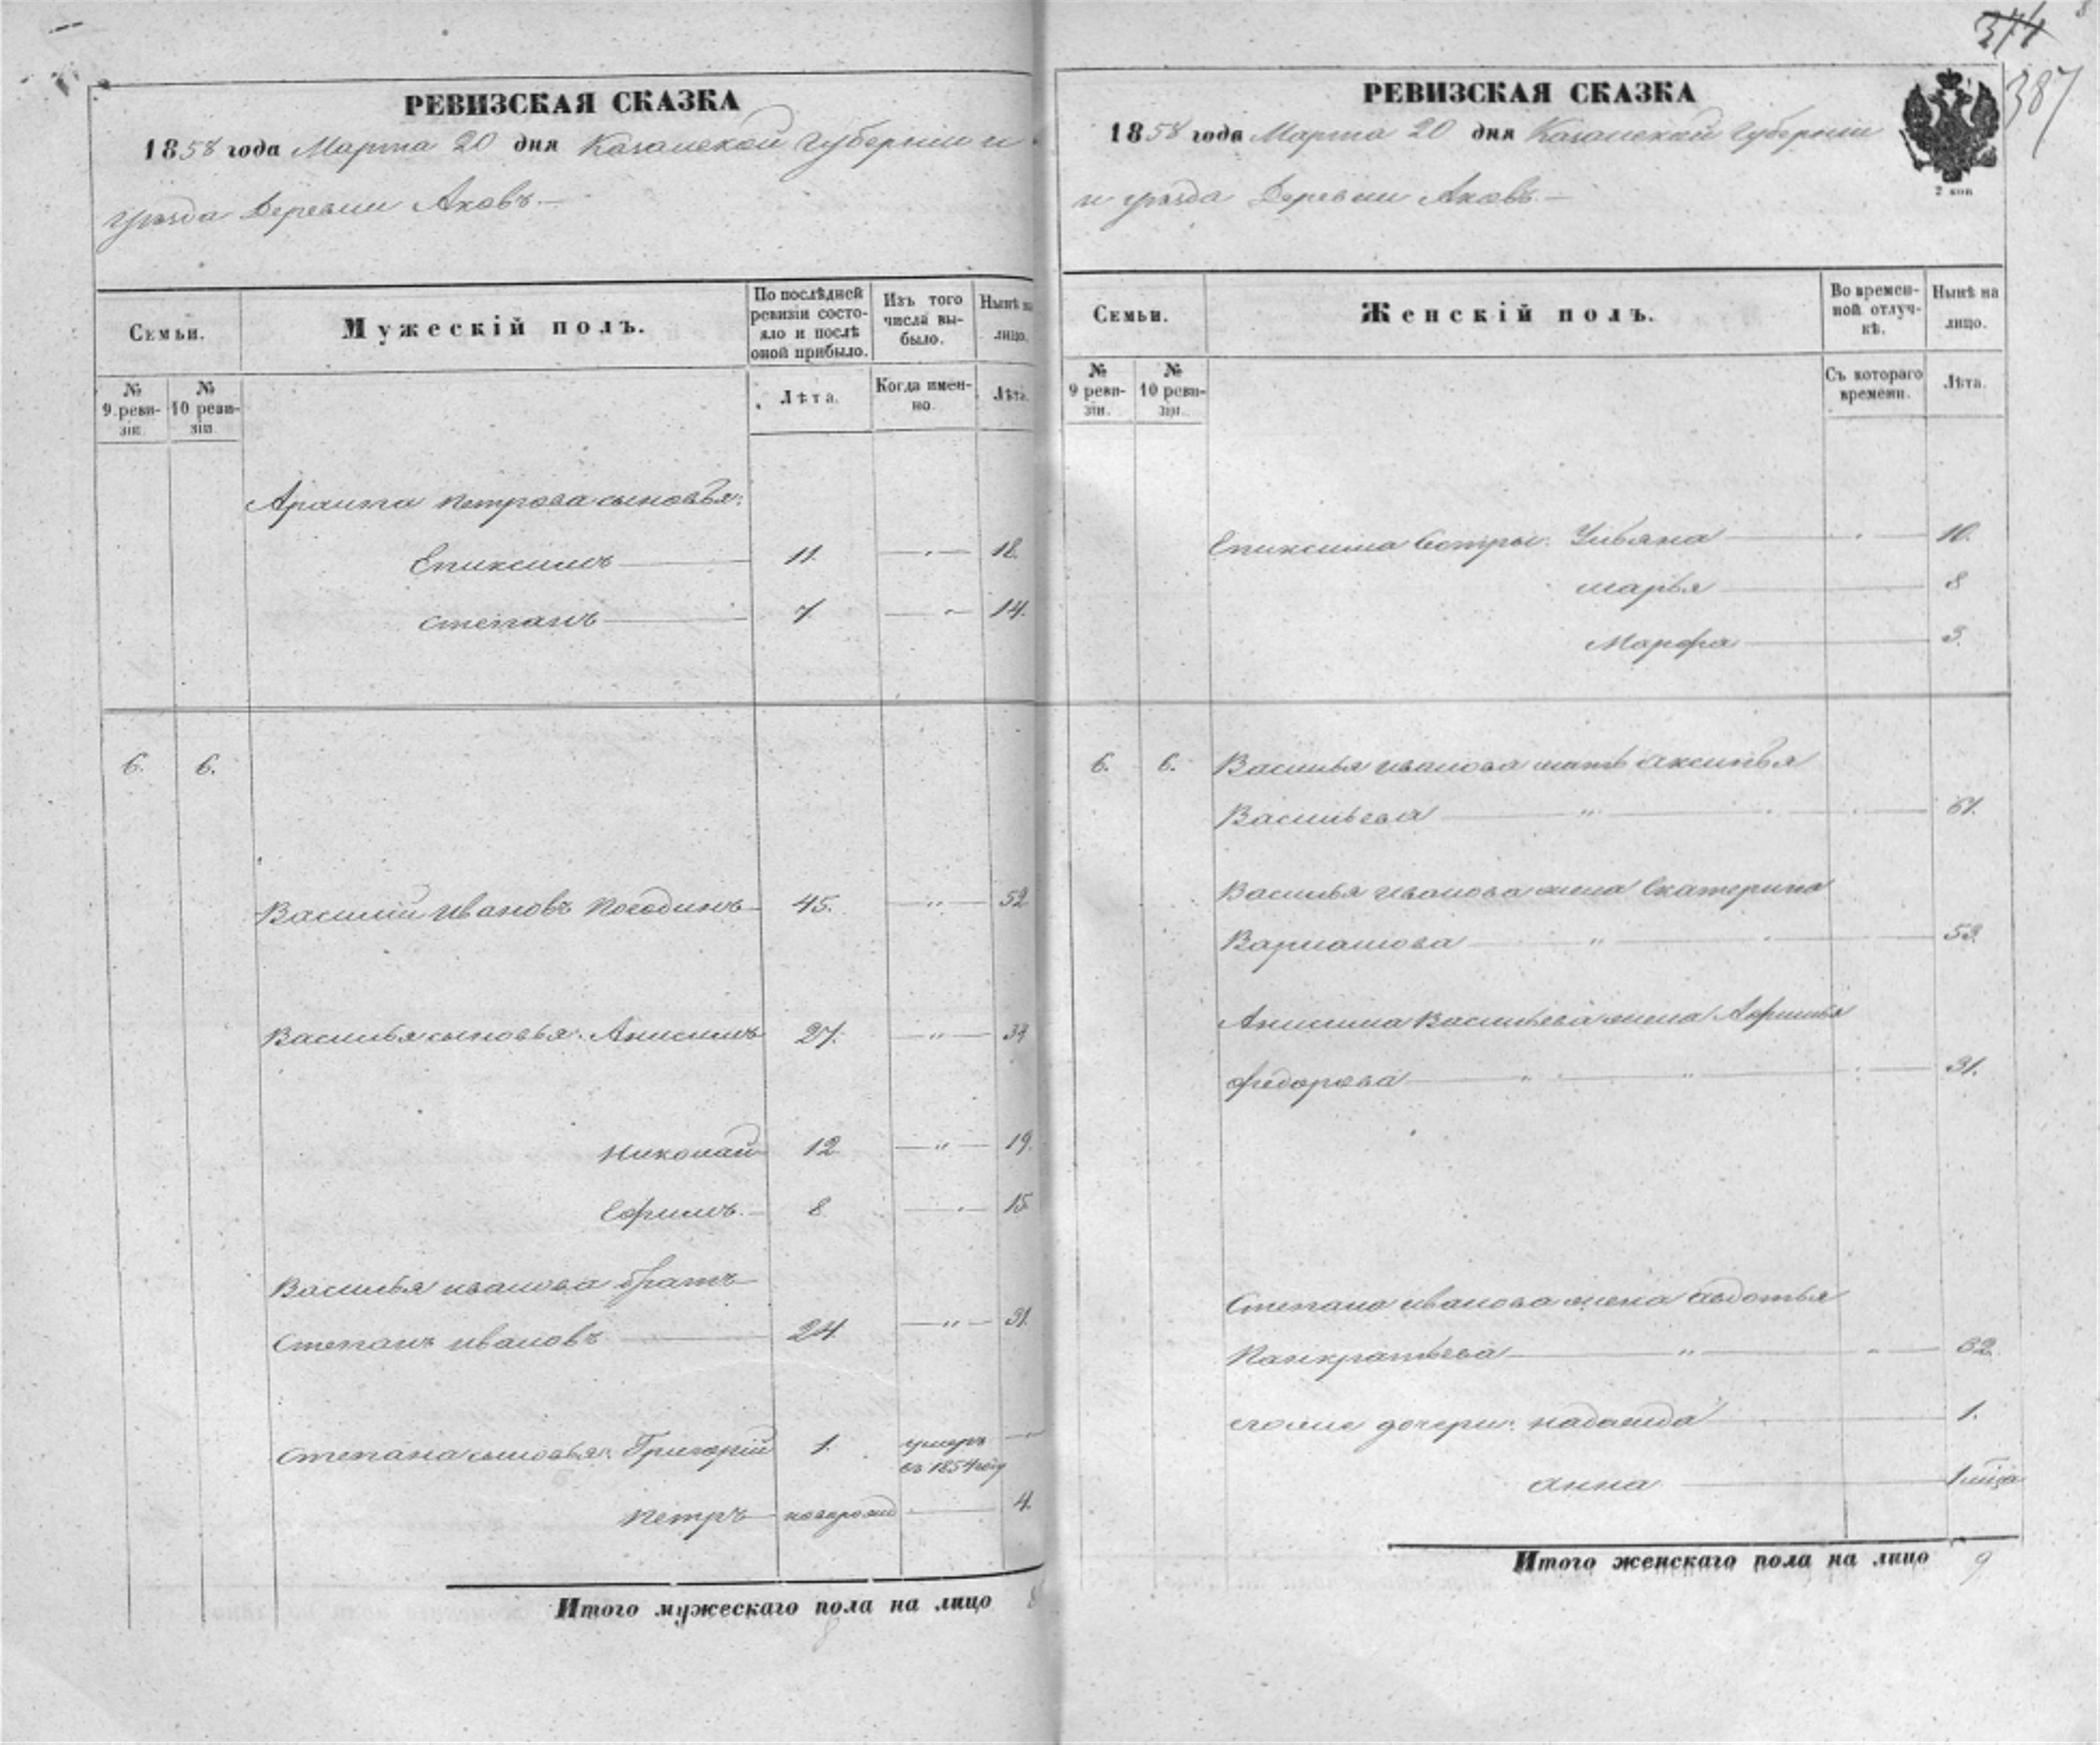 374
387
РЕВИЗСКАЯ СКАЗКА
1858 года Марта 20 дня Казанской Губернии и
уѣзда Деревни Аковъ.—
Семьи.
Мужескій полъ.
По послѣдней ревизіи состояло и послѣ оной прибыло.
Изъ того числа выбыло.
Нынѣ на лицо.
№ 9 ревизіи.
№ 10 ревизіи.
Лѣта.
Когда именно.
Лѣта.
Петрова сыновья:
Епиксимъ 11. 18.
Степанъ 7 14.
6. 6.
Василій Ивановъ Погодинъ 45. 52
Василья сыновья: Анисимъ 27. 34
Николай 12 19.
Ефимъ. 8 15
Василья Иванова братъ
Степанъ Ивановъ 24 31.
Степана сыновья: Григорій 1. умеръ въ 1854 году
Петръ новорожд 4.
Итого мужескаго пола на лицо 8
РЕВИЗСКАЯ СКАЗКА
1858 года Марта 20 дня Казанской Губерніи
и уѣзда Деревни Аковъ.—
2 коп
Семьи.
Женскій полъ.
Во временной отлучкѣ.
Нынѣ на лицо.
№ 9 ревизіи.
№ 10 ревизіи.
Съ котораго времени.
Лѣта.
Епиксима Сестры: Ульяна 10.
Марья 8
Марфа 3.
6. 6. Василья Иванова мать Аксинья
Васильева 61.
Василья Иванова жена Екатерина
53.
Анисима Васильева жена Афимья
Федорова 31.
Степана Иванова жена Авдотья
Панкратьева 32
дочери: Надежда 1.
Анна 1
Итого женскаго пола на лицо 9